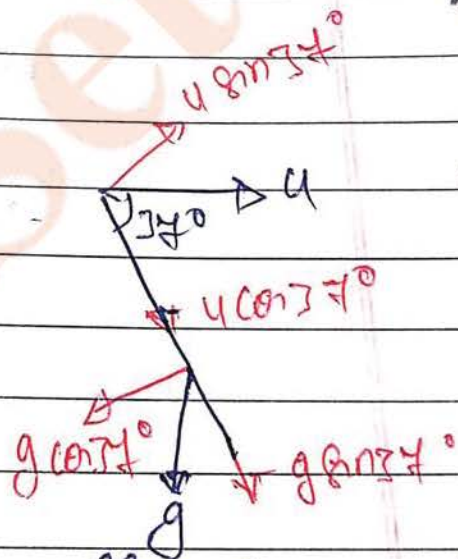 u sin37°
u
37°
u cos37°
g cos37°
g sin37°
g